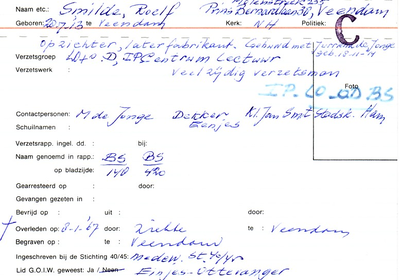 Naam etc.: Smilde, Roelf Prins Bernhardlaan 30, Veendam
Geboren: 20.7.'13 te Veendam Kerk: N.H. Politiek:
C
Opzichter, later fabrikant. Gehuwd met de Jonge
Verzetsgroep LO-KP D, IPCentrum Lectuur
Verzetswerk : Veelzijdig verzetsman
Foto
I.P. LO-OD. BS
Contactpersonen: M de Jonge Dekker Kl. Jan Smit Stadsk. Ham
Schuilnamen : Eenjes
Verzetsrapp. ingel. dd.: bij:
Naam genoemd in rapp.: BS BS
op bladzijde: 140
Gearresteerd op : door:
Gevangen gezeten in :
Bevrijd op : uit : door:
† Overleden op : 8-1-'67 door: Ziekte te : Veendam
Begraven op : te : Veendam
Ingeschreven bij de Stichting 40/45: medew. St. 40/45
Lid G.O.I.W. geweest: Ja / Neen